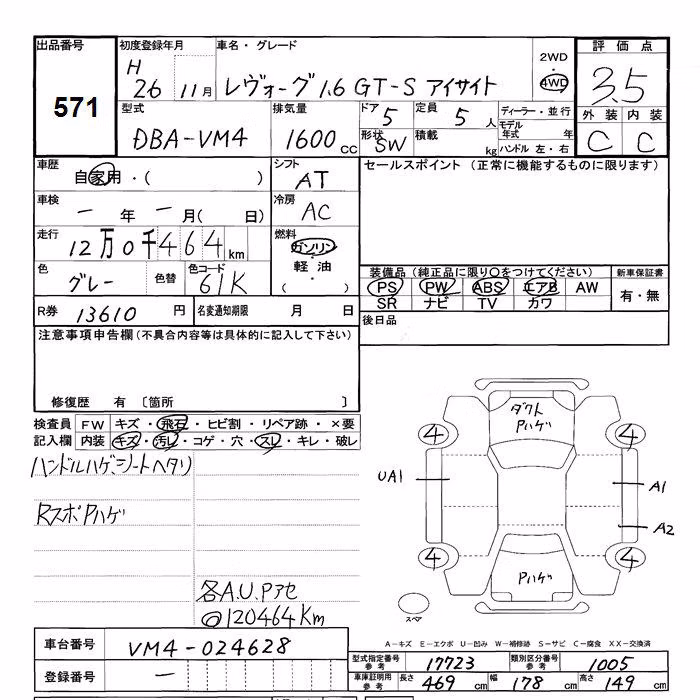 出品番号 初度登録年月 車名・グレード 2WD 評価点
571 H26 11月 レヴォーグ1.6 GT-S アイサイト 4WD 3.5
型式 排気量 ドア 5 定員 5 人 ディーラー・並行 外装 内装
DBA-VM4 1600 cc 形状 SW 積載 kg モデル年式 年 C C
ハンドル 左・右
車歴 自家用・( ) シフト AT セールスポイント (正常に機能するものに限ります)
車検 一 年 一 月( 日) 冷房 AC
走行 12万0千464km 燃料 ガソリン・軽油・( )
色 グレー 色替 色コード 61K 装備品 (純正品に限り○をつけてください) 新車保証書
PS PW ABS エアB AW 有・無
SR ナビ TV カワ
R券 13610 円 名変通知期限 月 日 後日品
注意事項申告欄 (不具合内容等は具体的に記入して下さい)
修復歴 有 〔箇所 〕
検査員 FW キズ・飛石・ヒビ割・リペア跡・×要
記入欄 内装 キズ・汚レ・コゲ・穴・スレ・キレ・破レ
ハンドルハゲ、シートヘタリ
RスポPハゲ
各A.U.Pアセ
@120464Km
ダクト
Pハゲ
4 4
UA1 A1
A2
4 4
Pハゲ
スペア
A-キズ E-エクボ U-凹み W-補修跡 S-サビ C-腐食 XX-交換済
車台番号 VM4-024628
登録番号 一
型式指定番号 参考 17723 類別区分番号 参考 1005
車庫証明用 参考 長さ 469 cm 幅 178 cm 高さ 149 cm